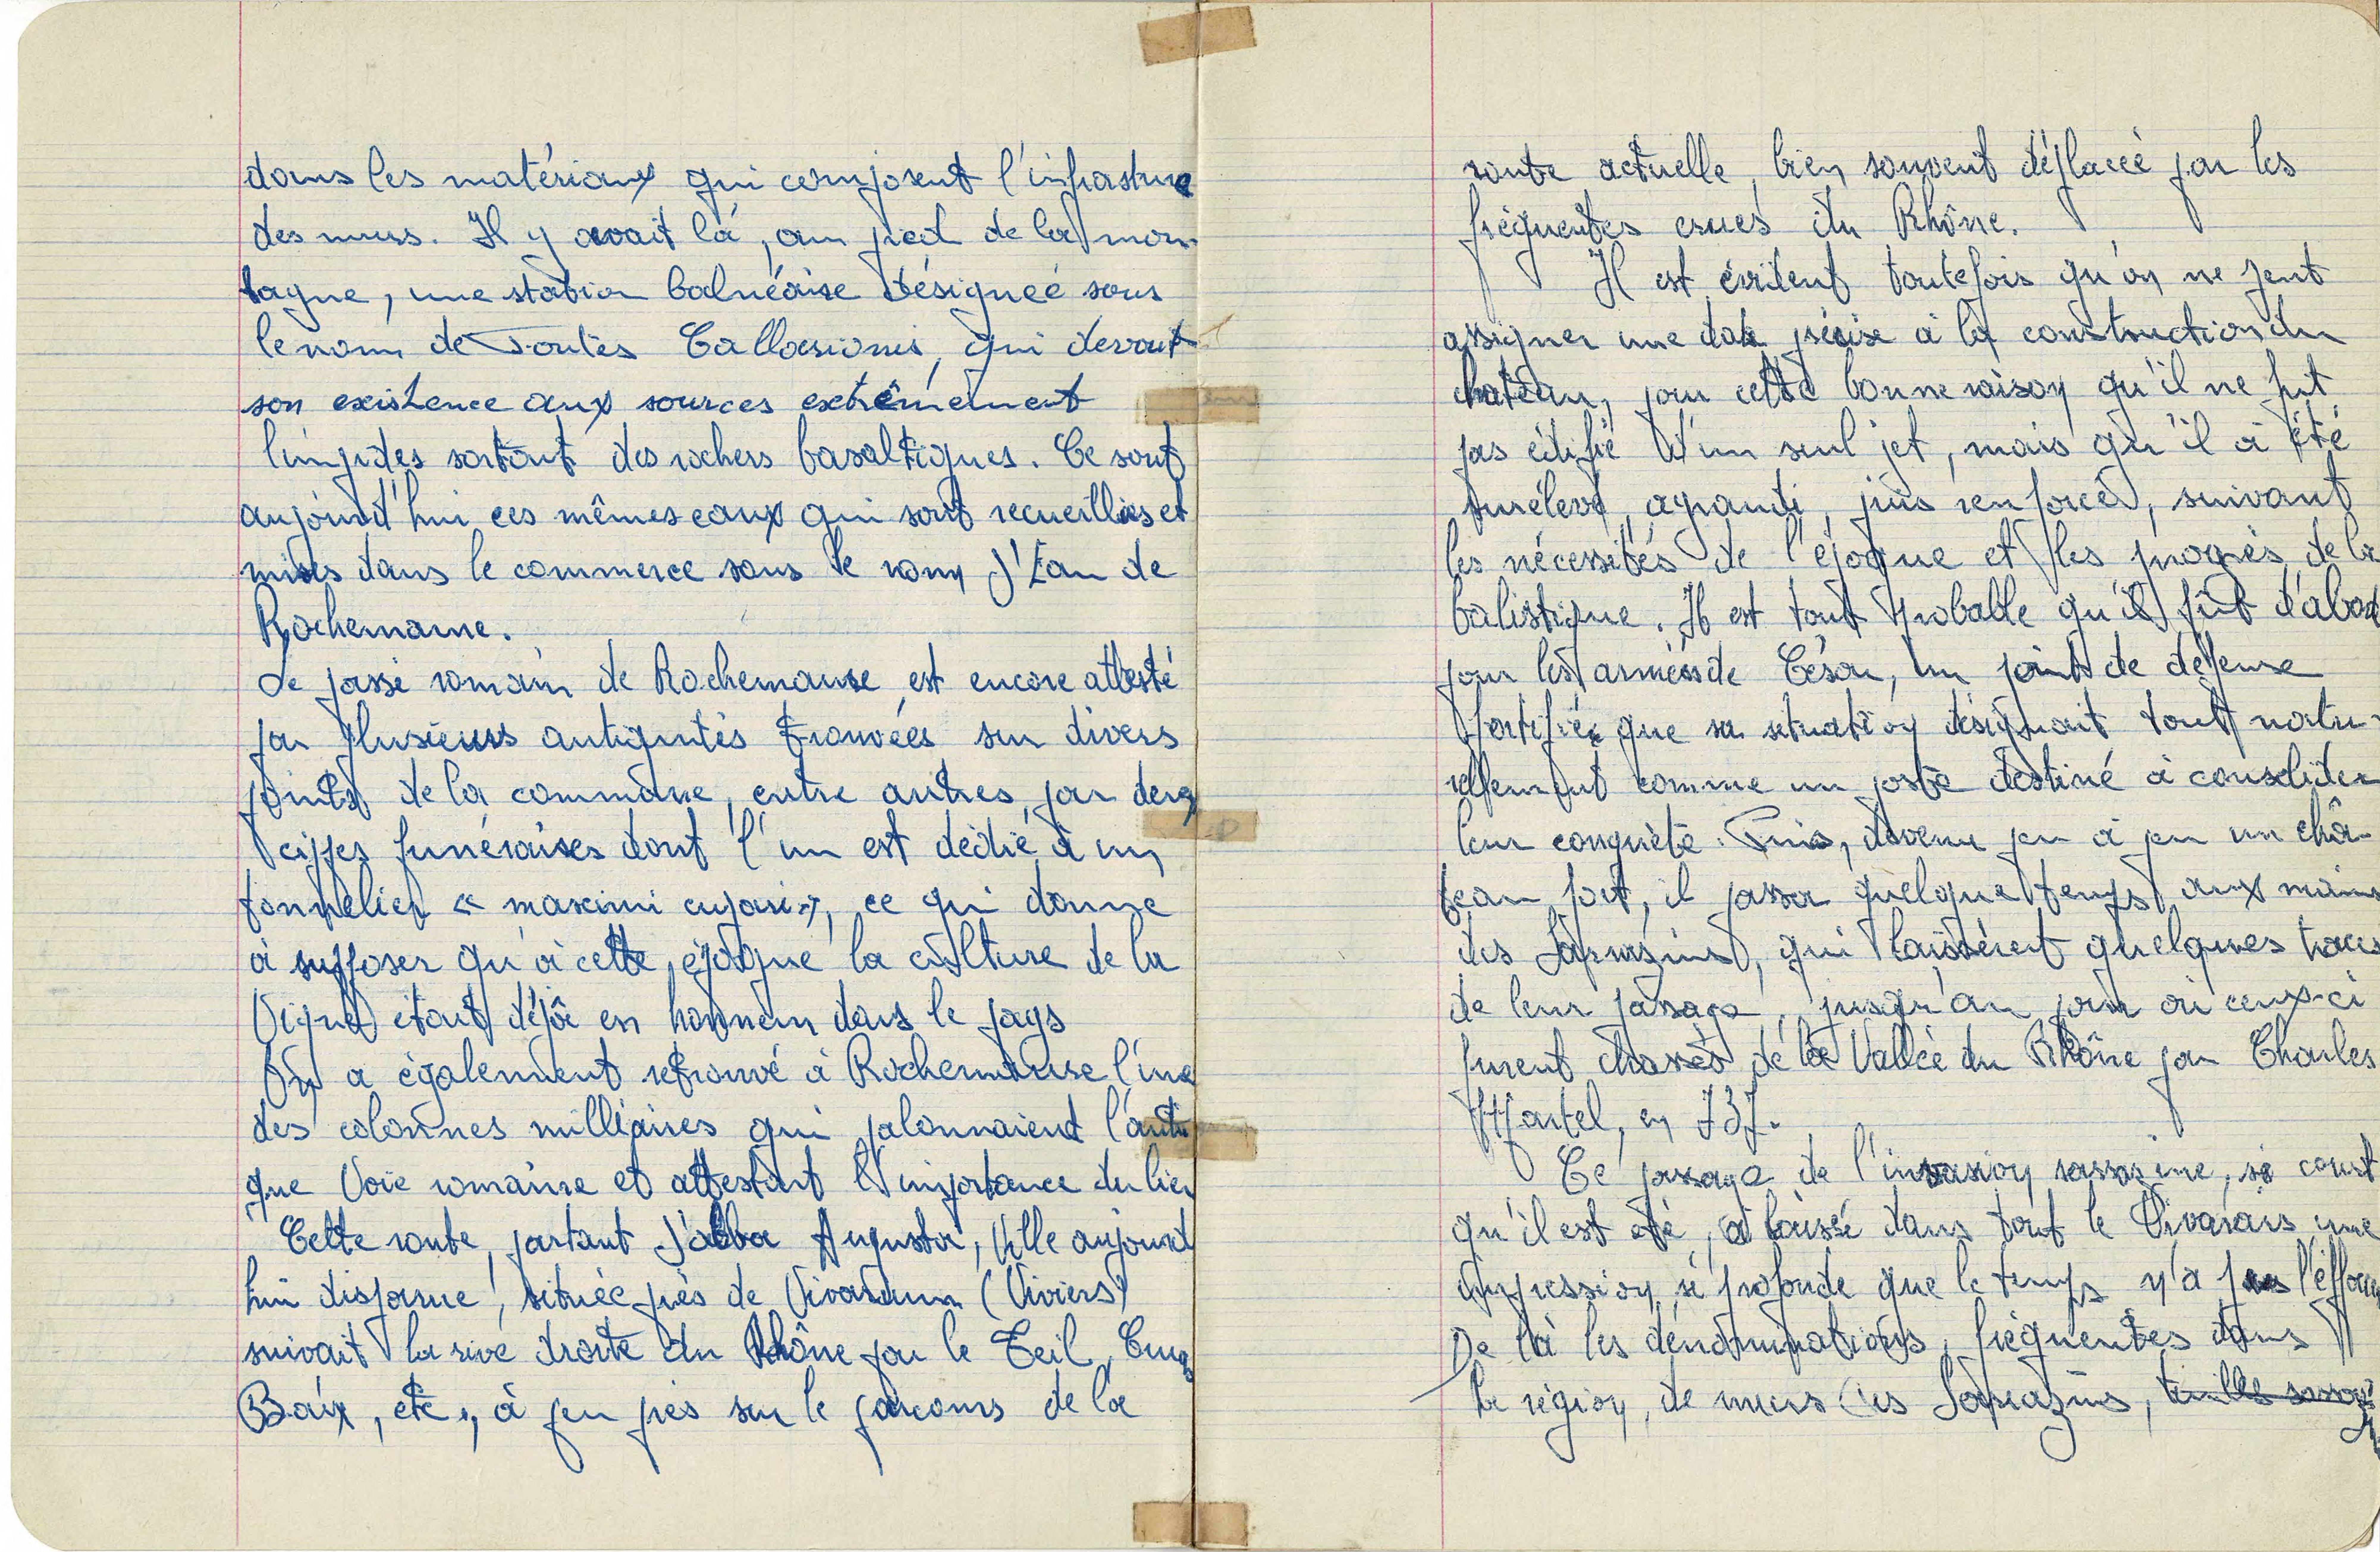 dans les matériaux qui composent l'infrastruce
des murs. Il y avait là, au pied de la mon-
tagne, une station balnéaire désignée sous
le nom de Fontès Callasionis, qui devait
son existence aux sources extrêmement
limpides sortant des rochers basaltiques. Ce sont
aujourd'hui ces mêmes eaux qui sont recueillies et
mises dans le commerce sous le nom d'Eau de
Rochemaure.
Le passé romain de Rochemaure est encore attesté
par plusieurs antiquités trouvées sur divers
points de la commune, entre autres, par deux
cippes funéraires dont l'un est dédié à un
tonnelier « maximi cupari », ce qui donne
à supposer qu'à cette époque la culture de la
Vigne était déjà en honneur dans le pays
On a également retrouvé à Rochemaure l'une
des colonnes milliaires qui jalonnaient l'anti
que Voie romaine et attestent l'importance du lieu
Cette route, partant d'alba Augusta, Ville aujourd
hui disparue, située près de Vivarium (Viviers)
suivait la rive droite du Rhône par le Teil, Cruas
Baix, etc., à peu près sur le parcours de la
route actuelle, bien souvent déplacée par les
fréquentes crues du Rhône.
Il est évident toutefois qu'on ne peut
assigner une date précise à la construction du
chateau, pour cette bonne raison qu'il ne fut
pas édifié d'un seul jet, mais qu'il a été
surélevé, agrandi, puis renforcé, suivant
les nécessités de l'époque et les progrès de la
balistique. Il est tout probable qu'il fût d'abord
pour les armées de César, un point de défense
fortifiée que sa situation désignait tout natu-
rellement comme un poste destiné à consolider
leur conquête. Puis, devenu peu à peu un châ-
teau fort, il passa quelque temps aux mains
des Sarrasins, qui laissèrent quelques traces
de leur passage, jusqu'au jour où ceux-ci
furent chassés de la Vallée du Rhône par Charles
Martel, en 737.
Ce passage de l'invasion sarrasine, si court
qu'il est été, a laissé dans tout le Vivarais une
impression si profonde que le temps n'a pas l'éffacer
De là les dénominations, fréquentes dans
la région, de murs des Sarrazins,